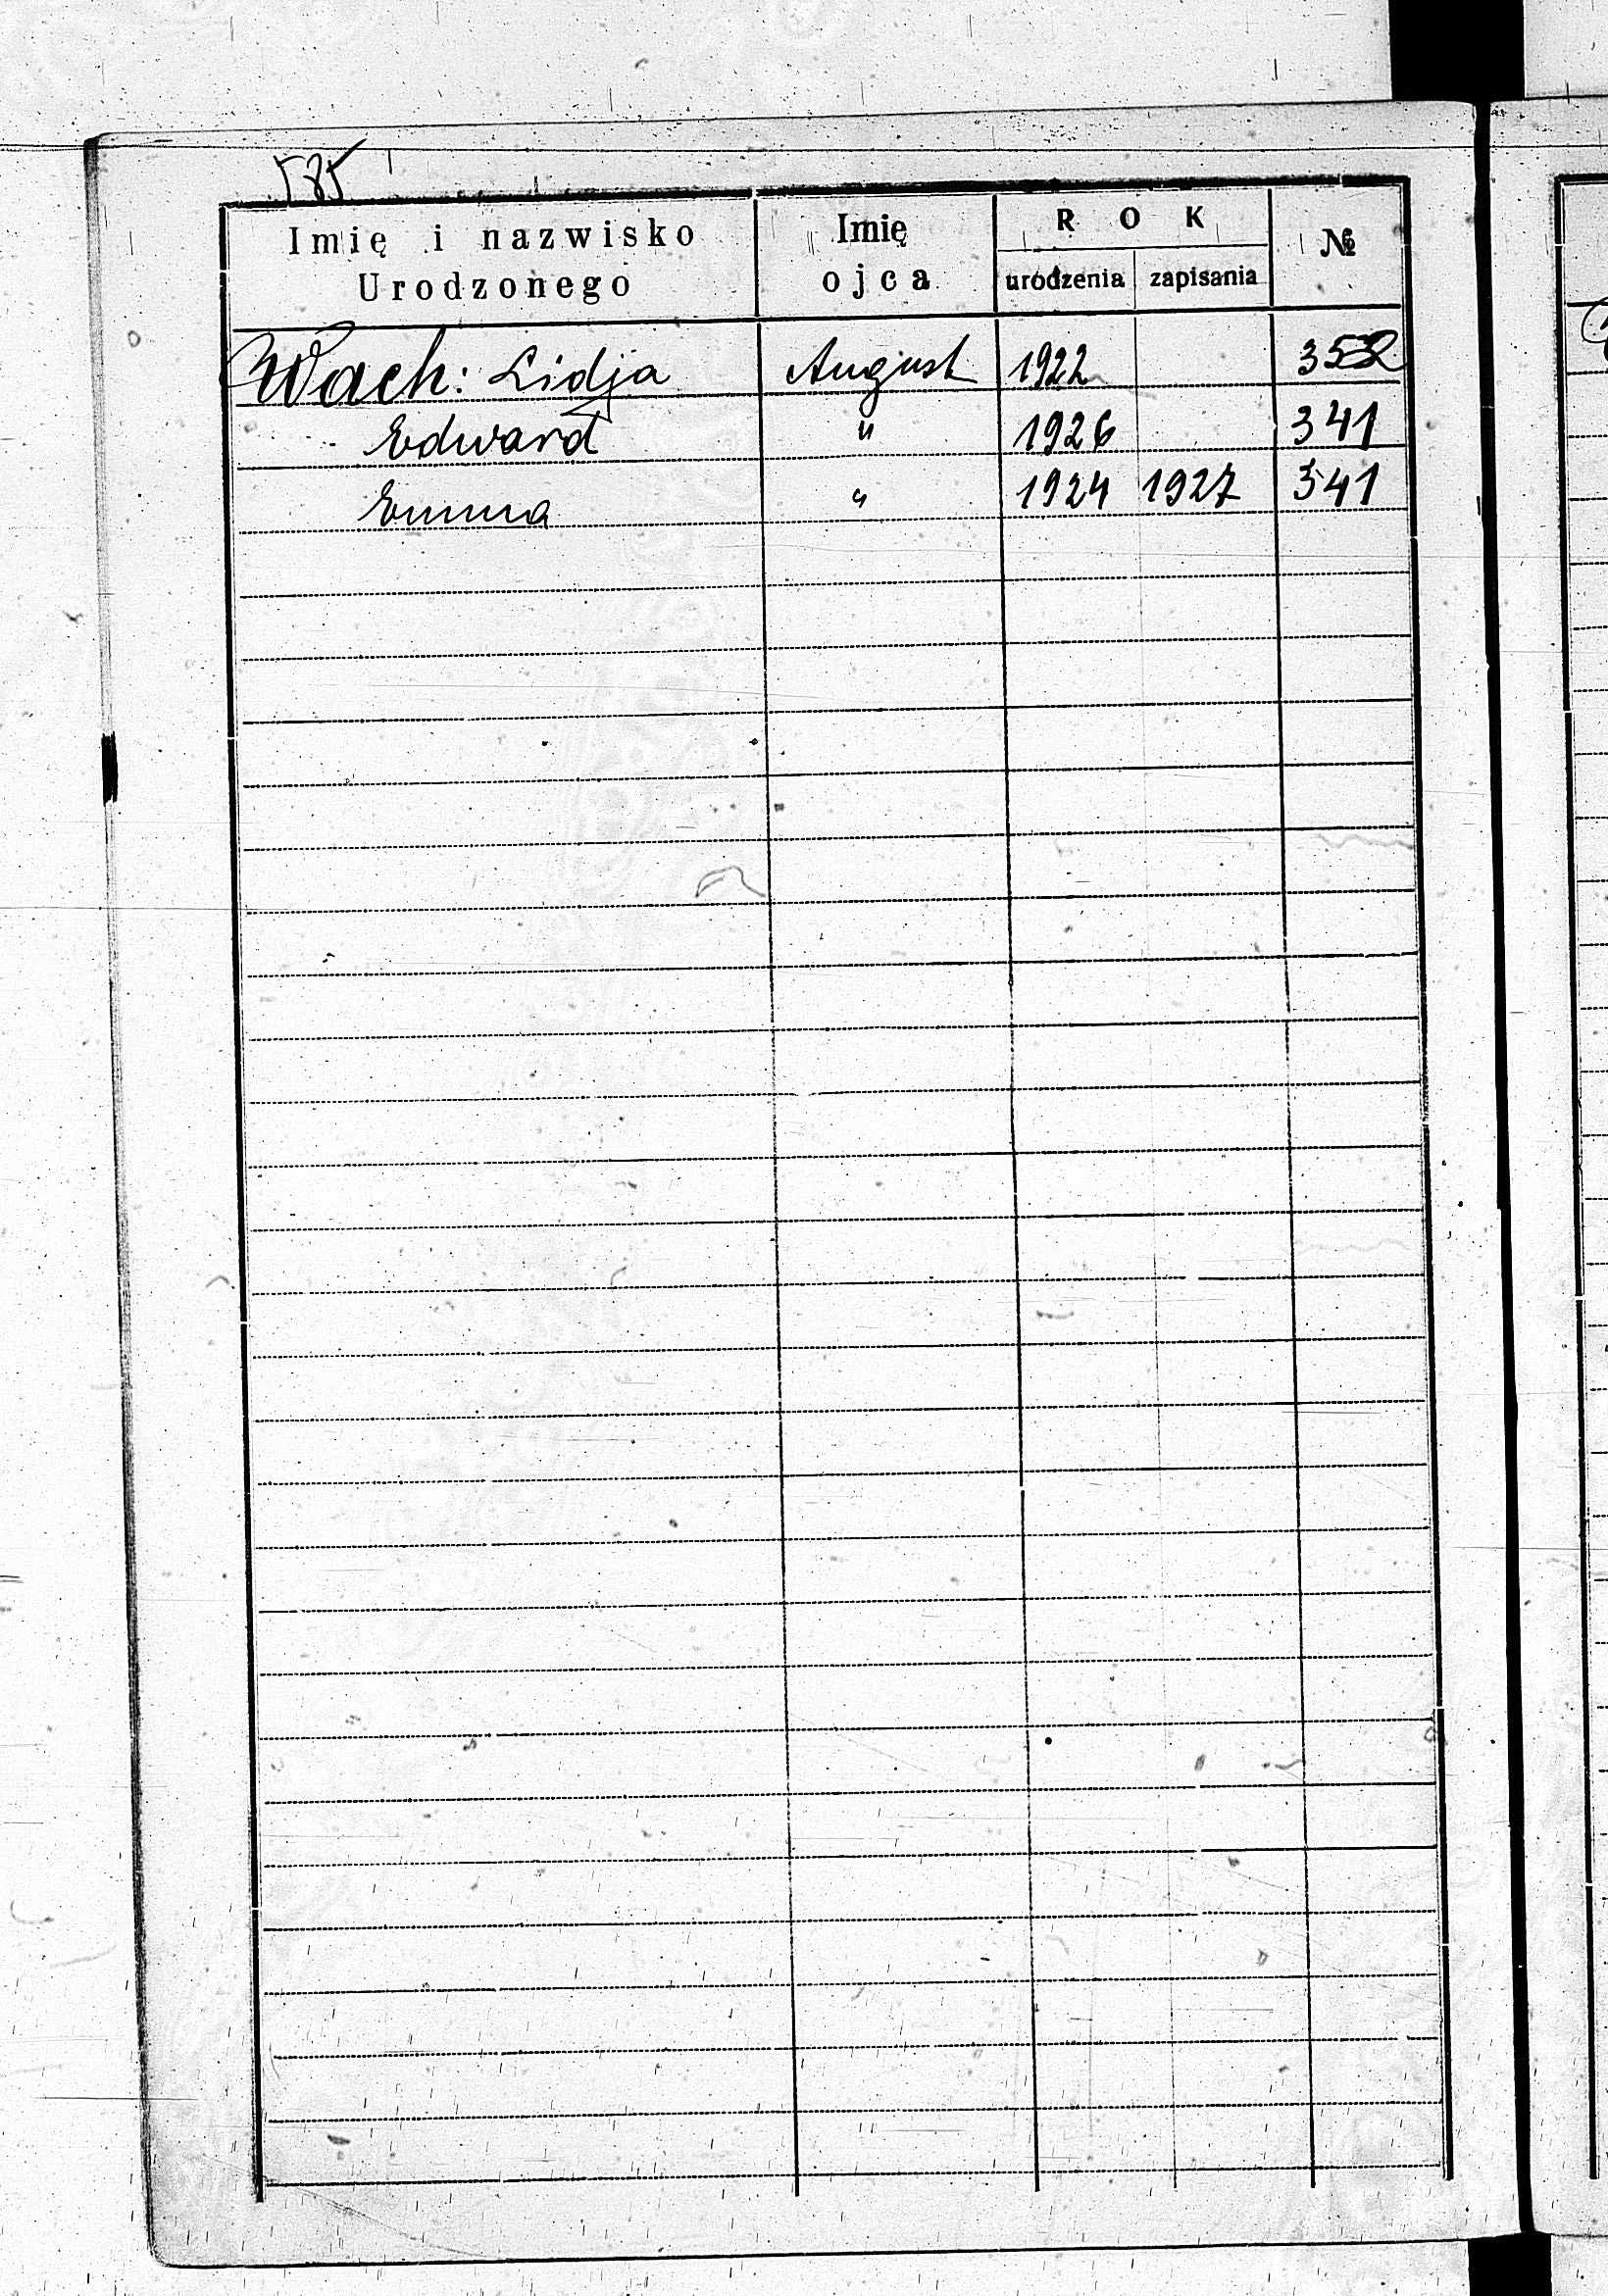 585
Imię i nazwisko Urodzonego | Imię ojca | ROK urodzenia | ROK zapisania | №
Wach: Lidja | August | 1922 | | 352
Edward | " | 1926 | | 341
Emma | " | 1924 | 1927 | 341